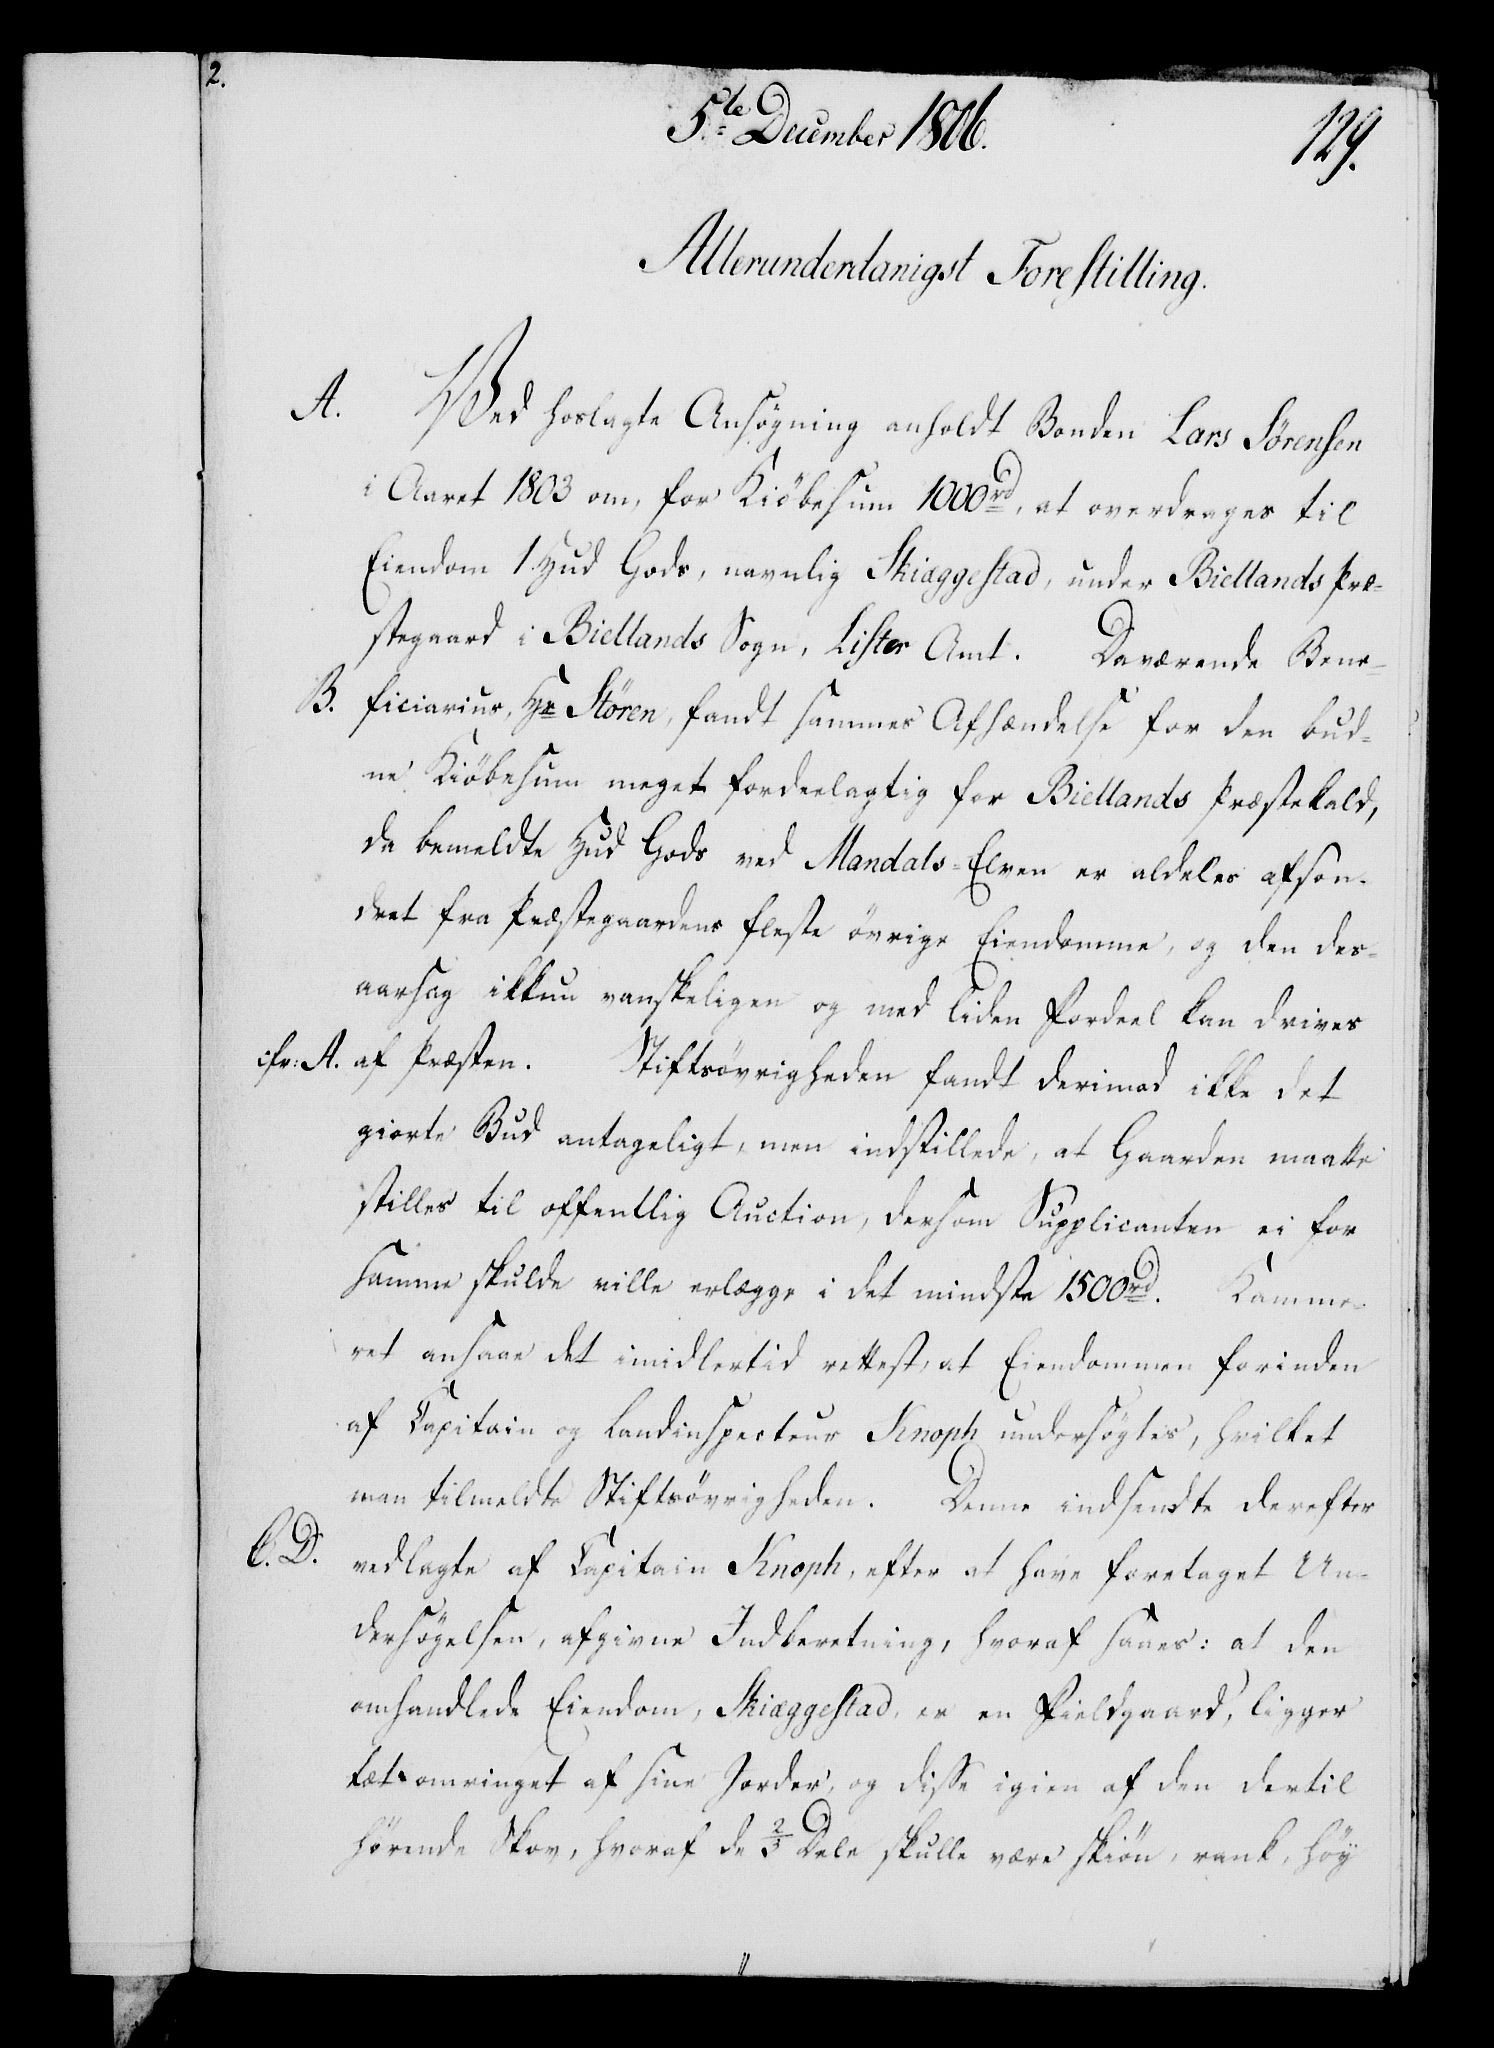 2.
5te December 1806.
129.
Allerunderdanigst Forestilling.
A. Ved hoslagte Ansögning anholdt Bonden Lars Sörensen
i Aaret 1803 om, for Kiöbesum 1000rd, at overdrages til
Eiendom 1 Hud Gods, navnlig Skiæggestad, under Biellands Præ-
stegaard i Biellands Sogn, Lister Amt. Daværende Bene-
B. ficiarius, Hr Stören, fandt sammes Afhændelse for den bud-
ne Kiöbesum meget fordeelagtig for Biellands Præstekald,
da bemeldte Hud Gods ved Mandals-Elven er aldeles afson-
dret fra Præstegaardens fleste övrige Eiendomme, og den des-
aarsag ikkun vanskeligen og med liden Fordeel kan drives
cfr: A. af Præsten. Stiftsövrigheden fandt derimod ikke det
giorte Bud antageligt, men indstillede, at Gaarden maatte
stilles til offentlig Auction, dersom Supplicanten ei for
samme skulde ville erlægge i det mindste 1500rd. Kamme-
ret ansaae det imidlertid rettest, at Eiendommen forinden
af Capitain og Landinspecteur Knoph undersögtes, hvilket
man tilmeldte Stiftsövrigheden. Denne indsendte derefter
C. D. vedlagte af Capitain Knoph, efter at have foretaget Un-
dersögelsen, afgivne Indberetning, hvoraf sees: at den
omhandlede Eiendom, Skiæggestad, er en Fieldgaard, ligger
tæt omringet af sine Jorder, og disse igien af den dertil
hörende Skov, hvoraf de 2/3 Dele skulle være skiön, rank, höy